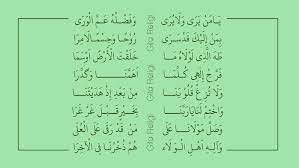 يَا مَنْ يَرَى وَلَا يُرَى وَفَضْلُهُ عَمَّ الْوَرَى
بِمَنْ إِلَيْكَ قَدْ سَرَى رُوْحًا وَجِسْمًا لَا مِرَا
طٰهَ الَّذِي لَوْلَاهُ مَا خَلَقْتَ الْأَرْضَ أَوْ سَمَا
فَرِّجْ إِلٰهِي كُلَّمَا أَهَمَّنَا وَكَدَّرَا
وَلَا تُزِغْ قُلُوْبَنَا مِنْ بَعْدِ إِذْ هَدَيْتَنَا
وَاخْتِمْ لَنَا يَا رَبَّنَا بِخَيْرٍ قَبْلَ غَرْغَرَا
وَصَلِّ مَوْلَانَا عَلَى مَنْ قَدْ رَقَى عَلَى الْعُلَى
وَآلِهِ أَهْلِ الْوِلَا هُمْ ذُخْرُنَا فِي الْآخِرَا
Gita Religi
Gita Religi
Gita Religi